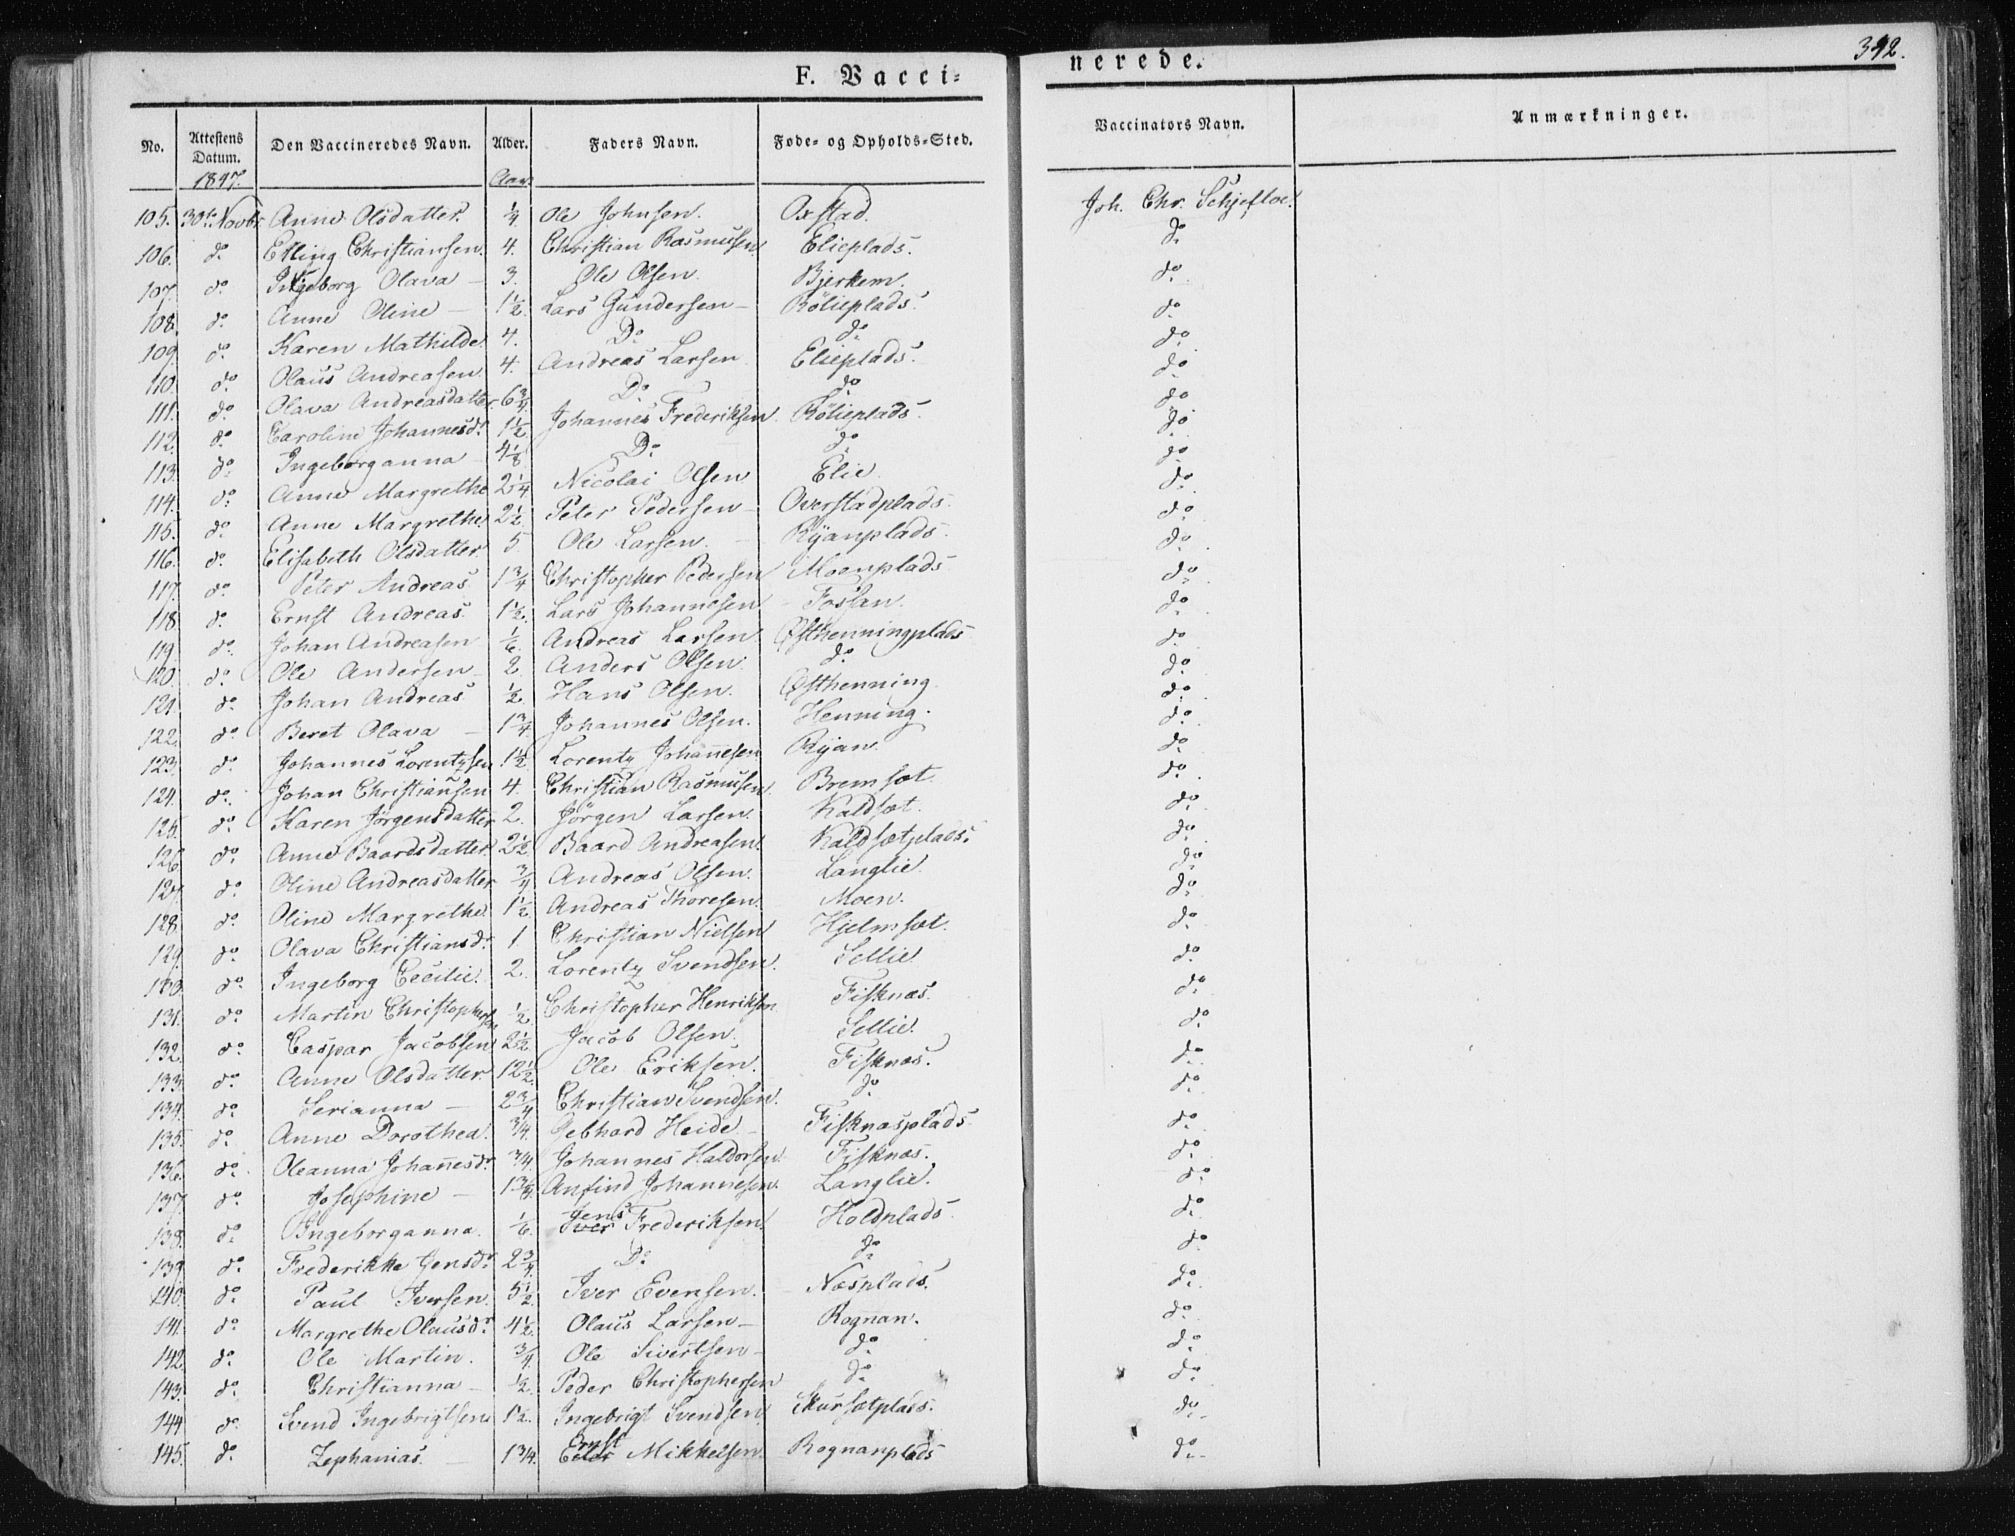 F. Vacci-
nerede.
392.
No. Attestens Datum. Den Vaccineredes Navn. Alder. Faders Navn. Føde- og Opholds-Sted. Vaccinators Navn. Anmærkninger.
1847. Aar.
105. 30te Novbr Anne Olsdatter. 1/4 Ole Johnsen. Oxstad. Joh. Chr. Schjefloe.
106. do Elling Christiansen. 4. Christian Rasmussen. Elieplads. do
107. do Ingeborg Olava – 3. Ole Olsen. Bjerkem. do
108. do Anne Oline – 1 1/2. Lars Gundersen – Rølieplads. do
109. do Karen Mathilde. 4. Do do do
110. do Olaus Andreasen 4. Andreas Larsen Elieplads. do
111. do Olava Andreasdatter. 6 3/4 Do do do
112. do Caroline Johannesdr 1 1/2 Johannes Frederiksen. Rølieplads. do
113. do Ingeborganna 4 1/8 Do do do
114. do Anne Margrethe 2 1/4 Nicolai Olsen Elie do
115. do Anne Margrethe 2 1/2 Peter Pedersen – Overstadplads. do
116. do Elisabeth Olsdatter 5. Ole Larsen. – Ryanplads. do
117. do Peter Andreas 1 3/4 Christopher Pedersen Moenplads do
118. do Ernst Andreas. 1 1/2. Lars Johannesen Fossan. do
119. do Johan Andreasen 1/6. Andreas Larsen Østhenningplads do
120. do Ole Andersen – 2. Anders Olsen. do do
121. do Johan Andreas 1/2. Hans Olsen. Østhenning. do
122. do Beret Olava – 1 3/4 Johannes Olsen. Henning. do
123. do Johannes Lorentzsen 1 1/2. Lorentz Johannesen Ryan. do
124. do Johan Christiansen 4. Christian Rasmussen. Bremsæt. do
125. do Karen Jørgensdatter 2. Jörgen Larsen. Kaldsæt. do
126. do Anne Baardsdatter. 2 1/2. Baard Andreasen. Kaldsætplads. do
127. do Oline Andreasdatter 3/4 Andreas Olsen. Langlie. do
128. do Oline Margrethe. 1 1/2. Andreas Thoresen. Moen. do
129. do Olava Christiansdr 1. Christian Nielsen Hjelmsæt. do
130. do Ingeborg Cecilie. 2. Lorentz Svendsen. Sellie do
131. do Martin Christophersen 1/2. Christopher Henriksen Fisknæs. do
132. do Caspar Jacobsen 2 1/2 Jacob Olsen. Sellie. do
133. do Anne Olsdatter. 12 1/2. Ole Eriksen. Fisknæs. do
134. do Serianna – 2 3/4 Christian Svendsen. do do
135. do Anne Dorothea. 3/4. Gebhard Heide – Fisknæsplads. do
136. do Oleanna Johanesdr 3/4. Johannes Haldorsen. Fisknæs. do
137. do Josephine – 1 3/8. Anfind Johannesen. Langlie. do
138. do Ingeborganna. 1/6. Iver Jens Frederiksen. Holdplads do
139. do Frederikke Jensdr 2 3/4. Do do do
140. do Paul Iversen. 5 1/2. Iver Evensen. Næsplads. do
141. do Margrethe Olausdr 4 1/2. Olaus Larsen – Rognan. do
142. do Ole Martin. 3/4. Ole Sivertsen – do do
143. do Christianna – 1/2. Peder Christophersen do do
144 do Svend Ingebrigtsen 1 1/2. Ingebrigt Svendsen. Skursætplads. do
145. do Zephanias. – 1 3/4. Ernst Mikkelsen. Rognanplads do